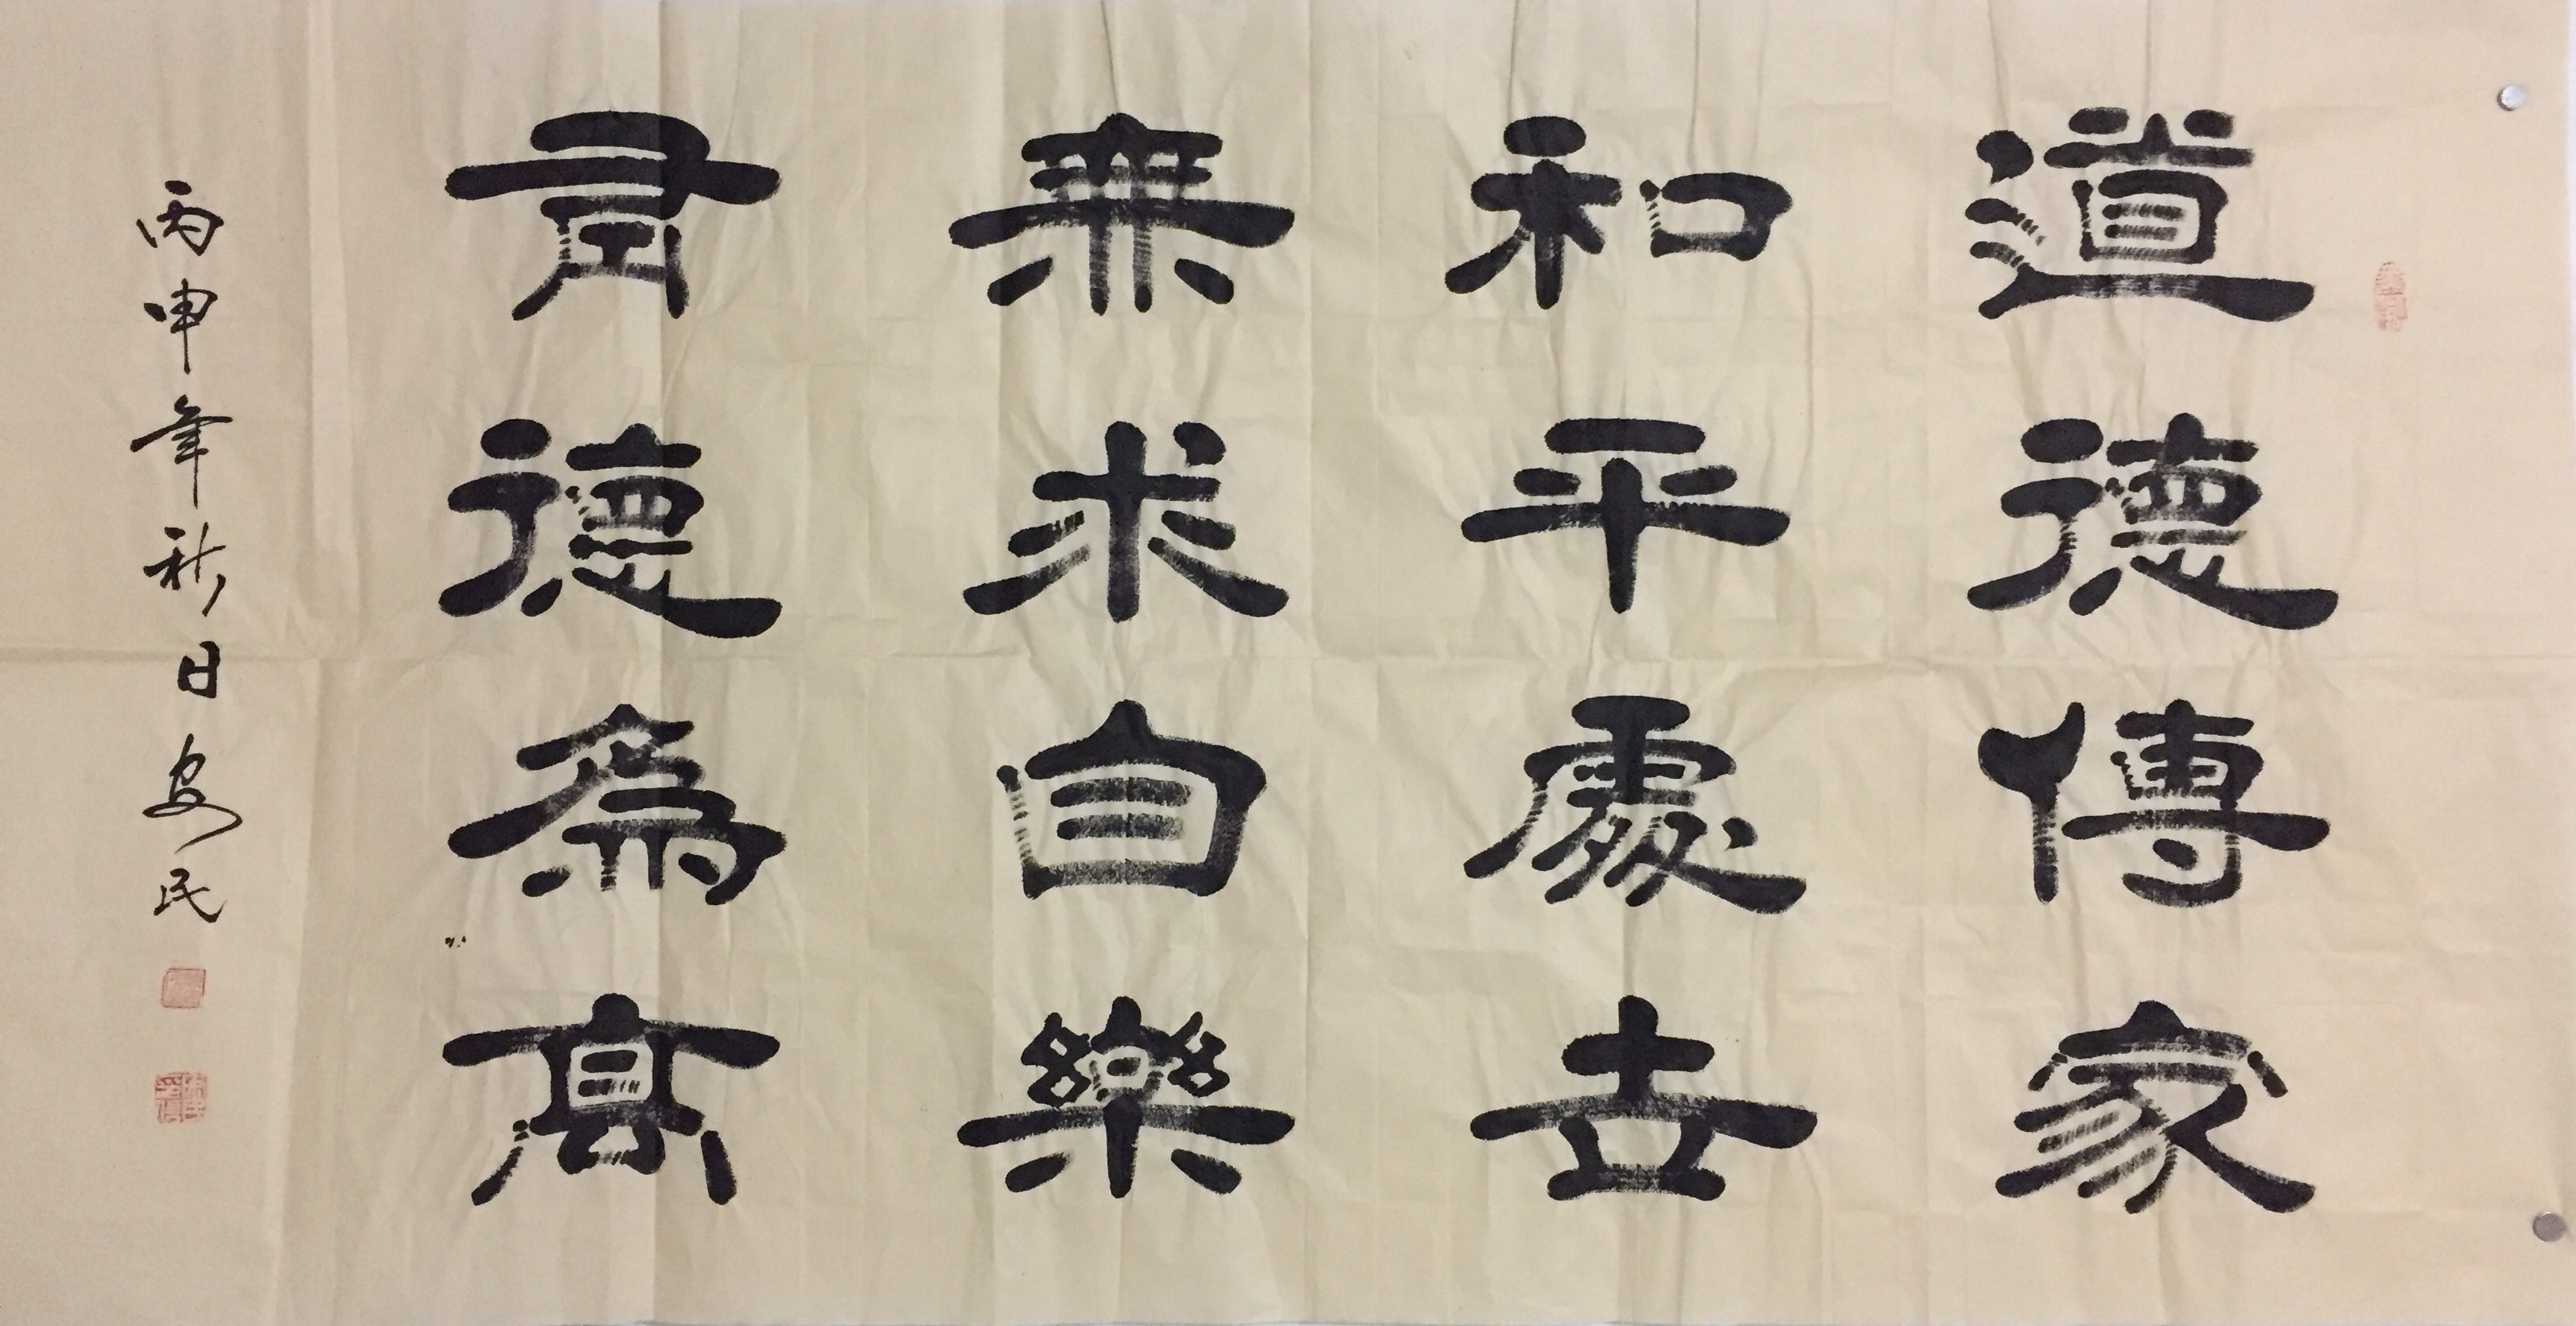 道德傳家
和平處世
無求自樂
德為高
丙申年秋日安民